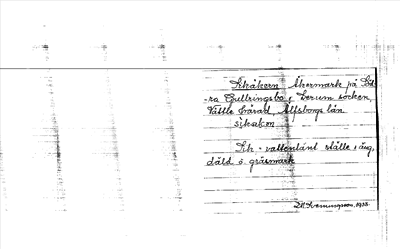 Skäkern Åkermark på Söd-
ra Gullringsbo, Lerum socken,
Vättle härad, Älfsborgs län
sikabon
Sk - vattenlänt ställe i äng,
däld o. gräsmark
D.N. Svenningsson, 1933.